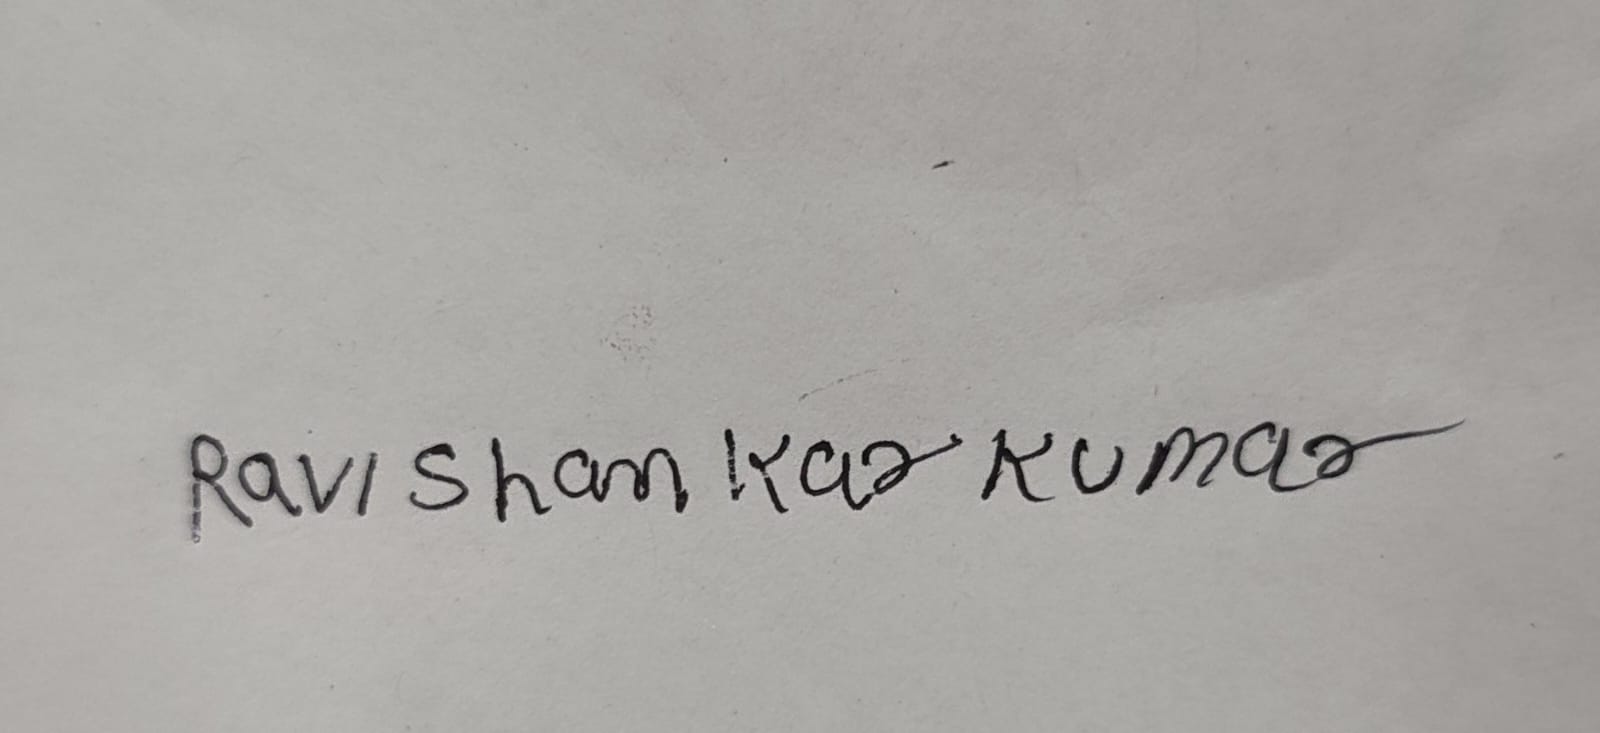 Ravi Shankar Kumar